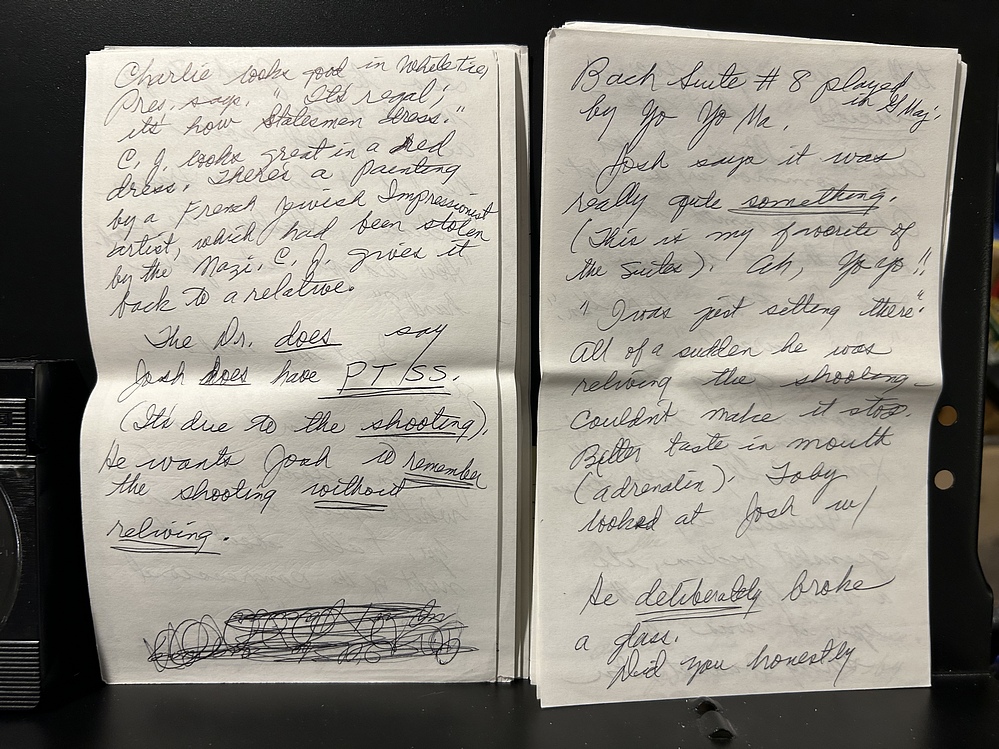 Charlie looks good in White tie,
Pres. says, "It's regal,
it's how Statesmen dress."
C. J. looks great in a red
dress. There's a Painting
by a French Jewish Impressionist
artist, which had been stolen
by the Nazi. C. J. gives it
back to a relative.
The Dr. does say
Josh does have PTSS.
(It's due to the shooting).
He wants Josh to remember
the shooting without
reliving.
Bach Suite # 8 played
in G Maj.
by Yo Yo Ma.
Josh says it was
really quite something.
(This is my favorite of
the Suites). Ah, Yo yo!!
"I was just sitting there"
All of a sudden he was
reliving the shooting-
Couldn't make it stop.
Bitter taste in mouth
(adrenalin). Toby
looked at Josh w/
He deliberately broke
a glass.
Did you honestly